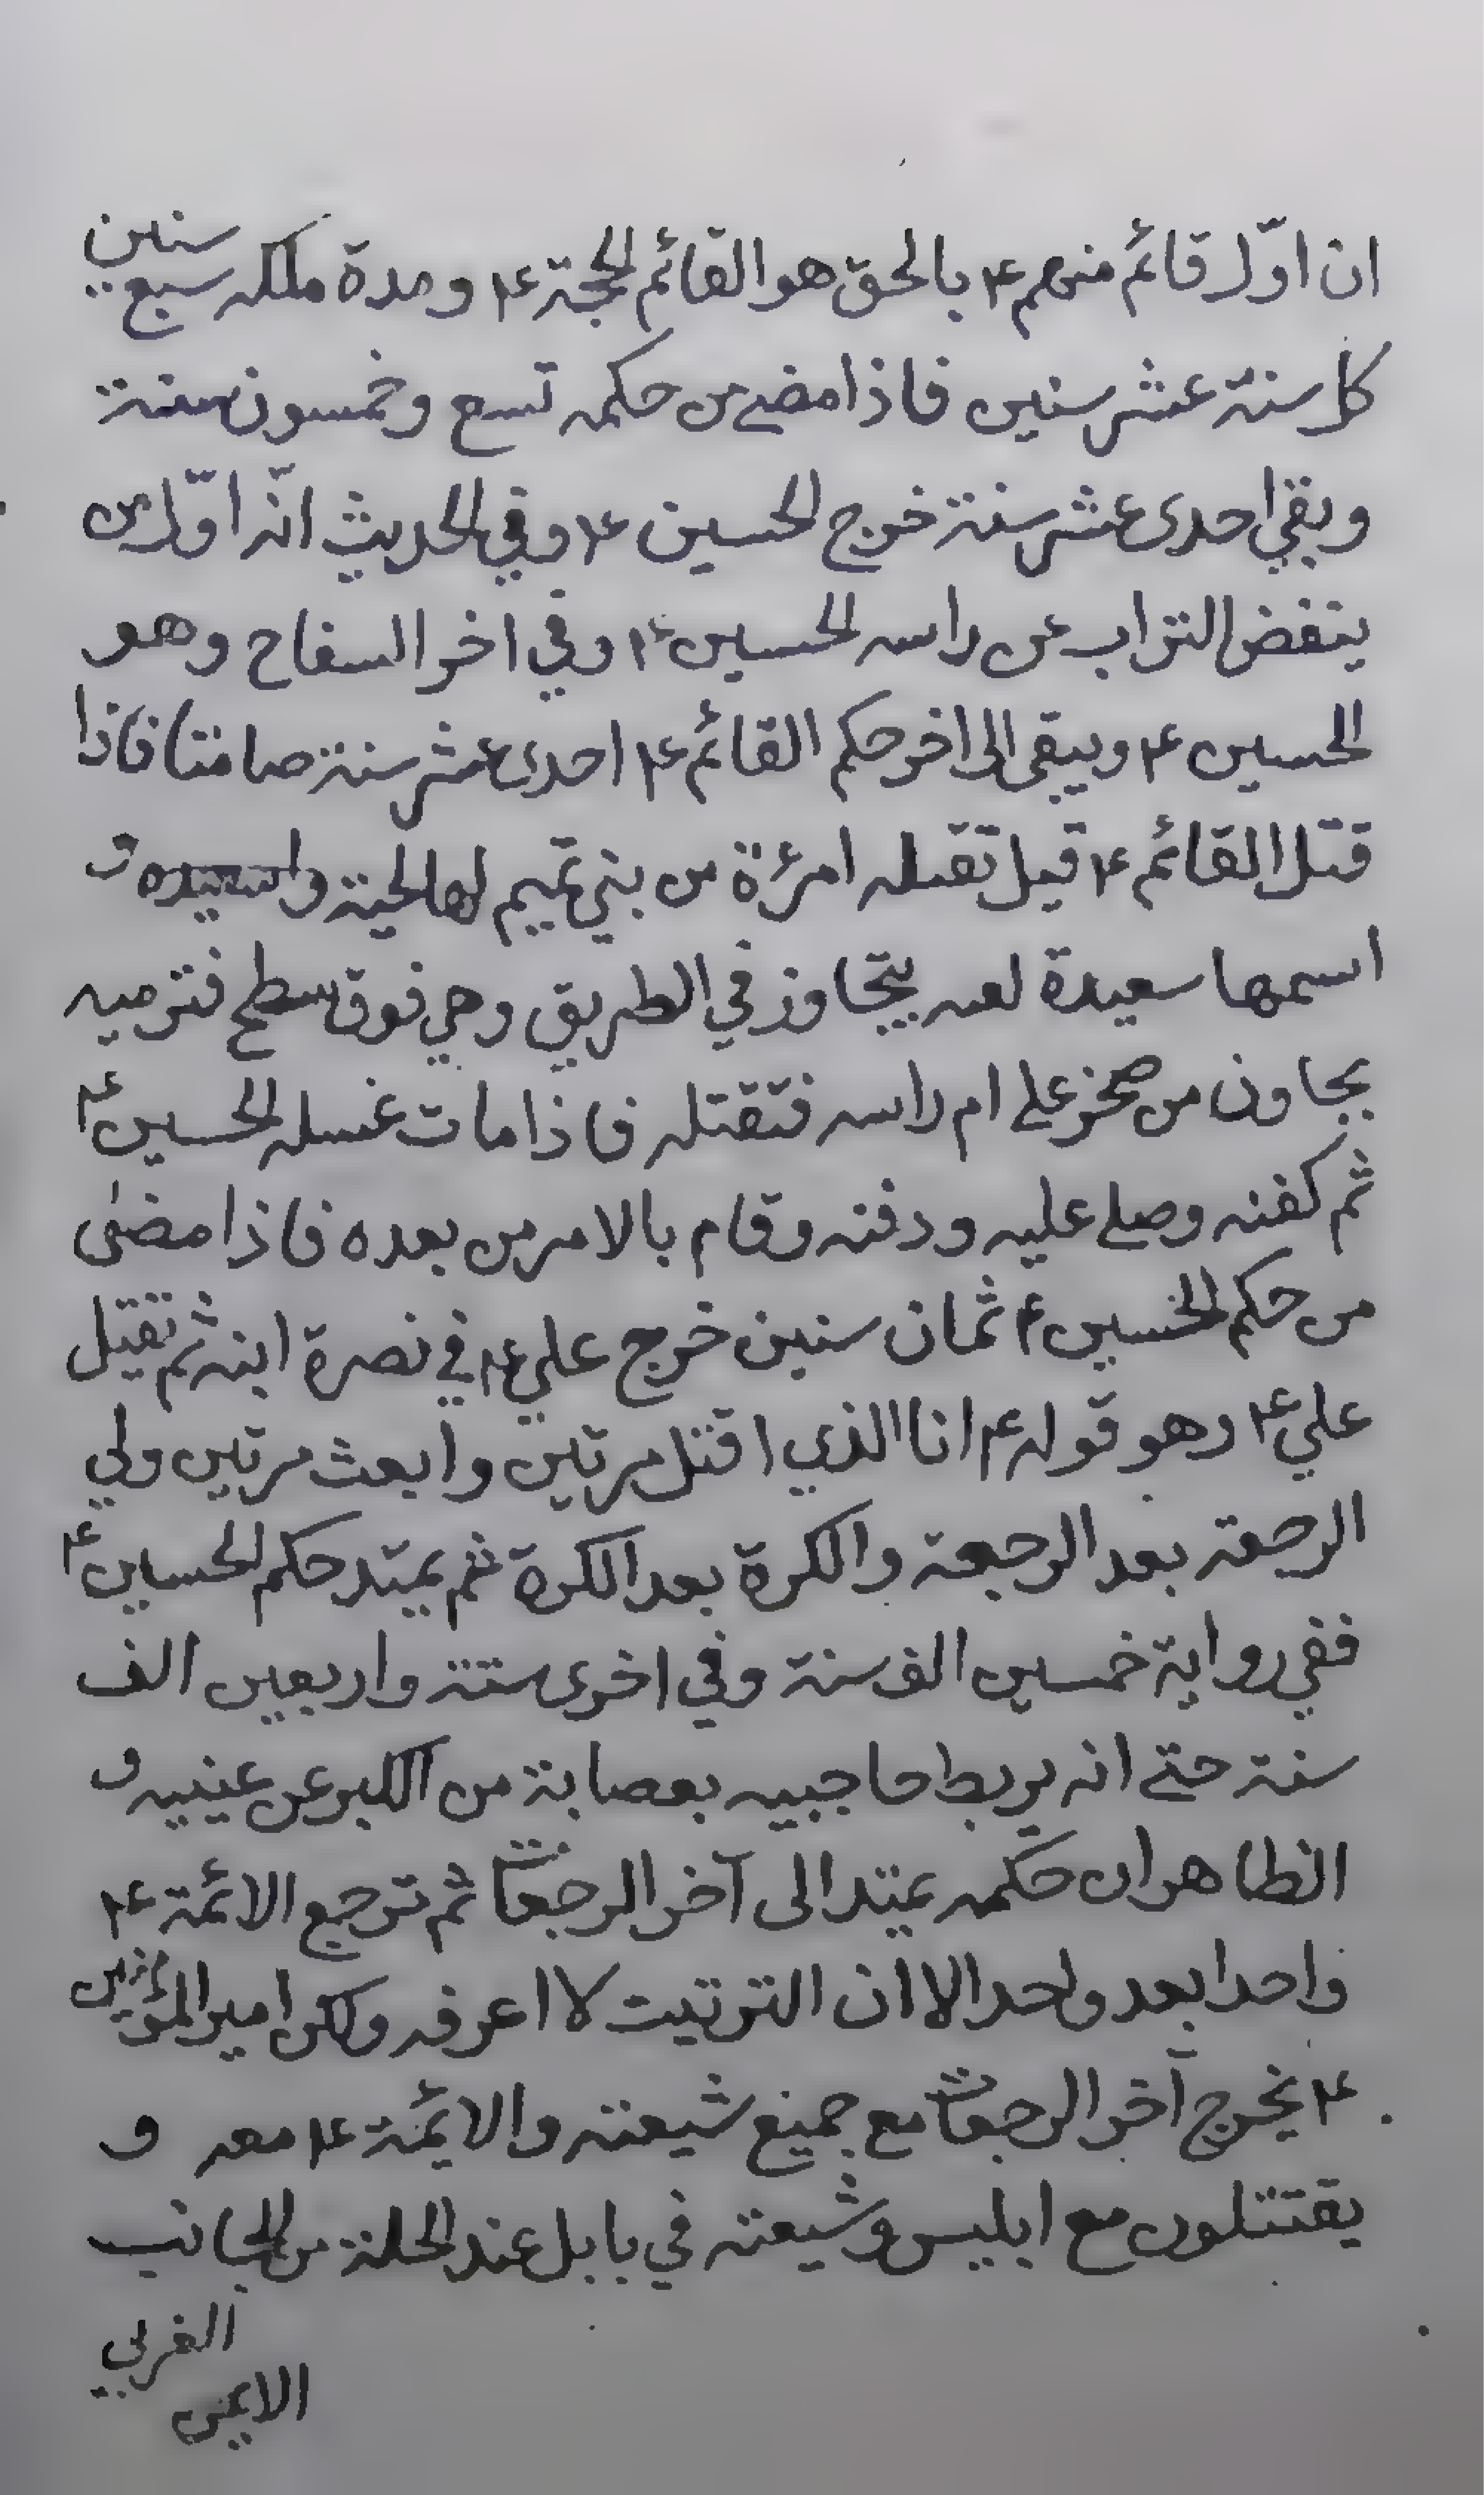 ان اوّل قائم منهم ع١ بالحق هو القائم الحجة ع١ ومدة ملكه سبع سنين
كل سنة عشر سنين فاذا مضے من حكمه تسع وخمسون سنة
وبقي احدى عشر سنة خرج الحسين ع١ وفي الحديث انّه اوّل من
ينفض التراب عن راسه الحسين ع١ وفي اخر السفاح وهو
الحسين ع١ ويبقى الى اخر حكم القائم ع١ احدى عشر سنة صامتا فاذا
قتل القائم ع١ قيل تقتله امرئة من بني تميم لها لحية و
اسمها سعيدة لعنه يتجاوز في الطريق وهي فوق سطح فترميه
بجاون من صخر علے ام راسه فتقتله فاذا مات غسله الحسين ع١
ثم كفنه وصلے عليه ودفنه وقام بالامر من بعده فاذا مضى
من حكم الحسين ع١ ثمان سنين خرج علي ع١ في نصرة ابنه ثم تقيل
علي ع١ وهو قوله ع١ انا الذي اقتل مرتين وابعث مرتين ولي
الرجعة بعد الرجعة والكرة بعد الكرة ثم يمتد حكم الحسين ع١
ففي رواية خمسين الف سنة وفي اخرى ستة واربعين الف
سنة حتے انه يربط حاجبيه بعصابة من الكبر عن عينيه و
الظاهر ان حكمه يمتد الى آخر الرجعات ثم ترجع الائمة ع١
واحدا بعد واحد الا ان الترتيت لا اعرفه ولكن امير المؤمنين
ع١ يخرج آخر الرجعات مع جميع شيعته والائمة ع١ معه و
يقتتلون مع ابليس وشيعته في بابل عند الحلة من الجانب
الغربي
الايمن